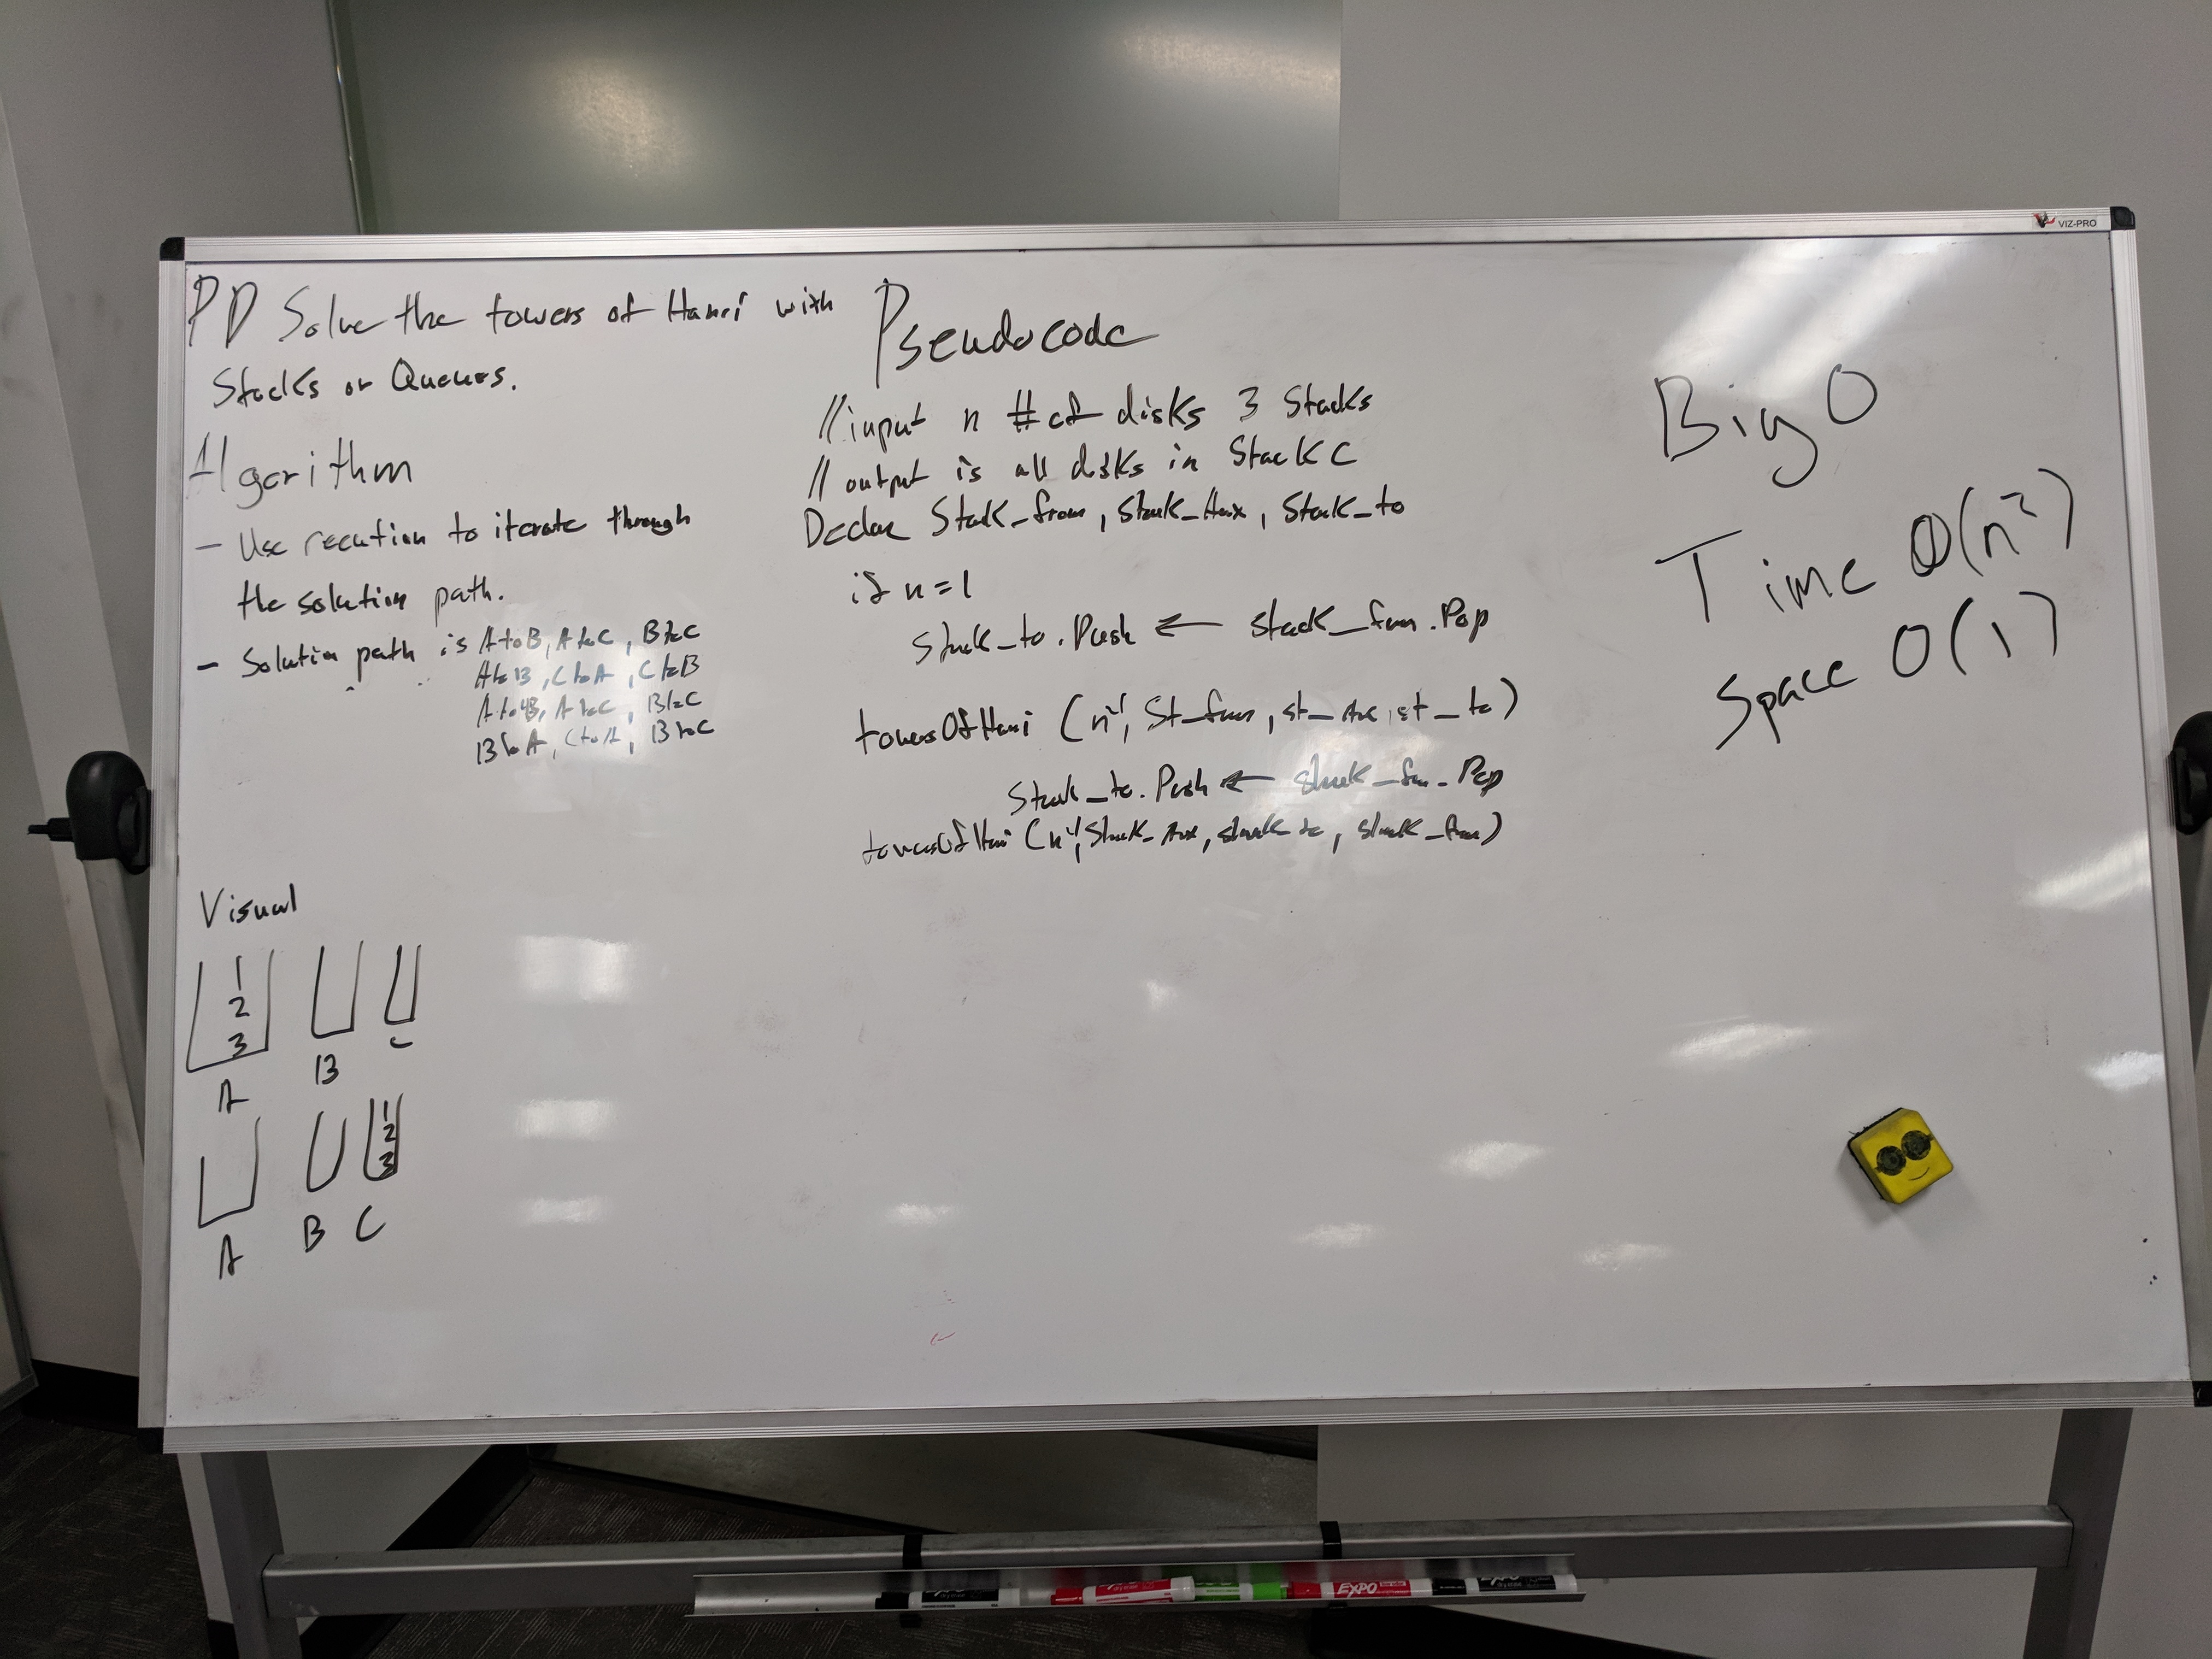 PD Solve the towers of Hanoi with
Stacks or Queues.
Algorithm
- Use recution to iterate through
the solution path.
- Solution path is A to B, A to C, B to C
A to B, C to A, C to B
A to B, A to C, B to C
B to A, C to A, B to C
Visual
1
2
3
A B C
1
2
3
A B C
Pseudocode
//input n # of disks 3 Stacks
//output is all disks in Stack C
Declar Stack_from, Stack_Aux, Stack_to
if n=1
Stack_to.Push ← Stack_from.Pop
towersOfHanoi (n-1, St_from, st_Aux, st_to)
Stack_to.Push ← stack_from.Pop
towersOfHanoi (n-1, Stack_Aux, stack_to, stack_from)
Big O
Time O(n²)
Space O(1)
VIZ-PRO
EXPO
EXPO